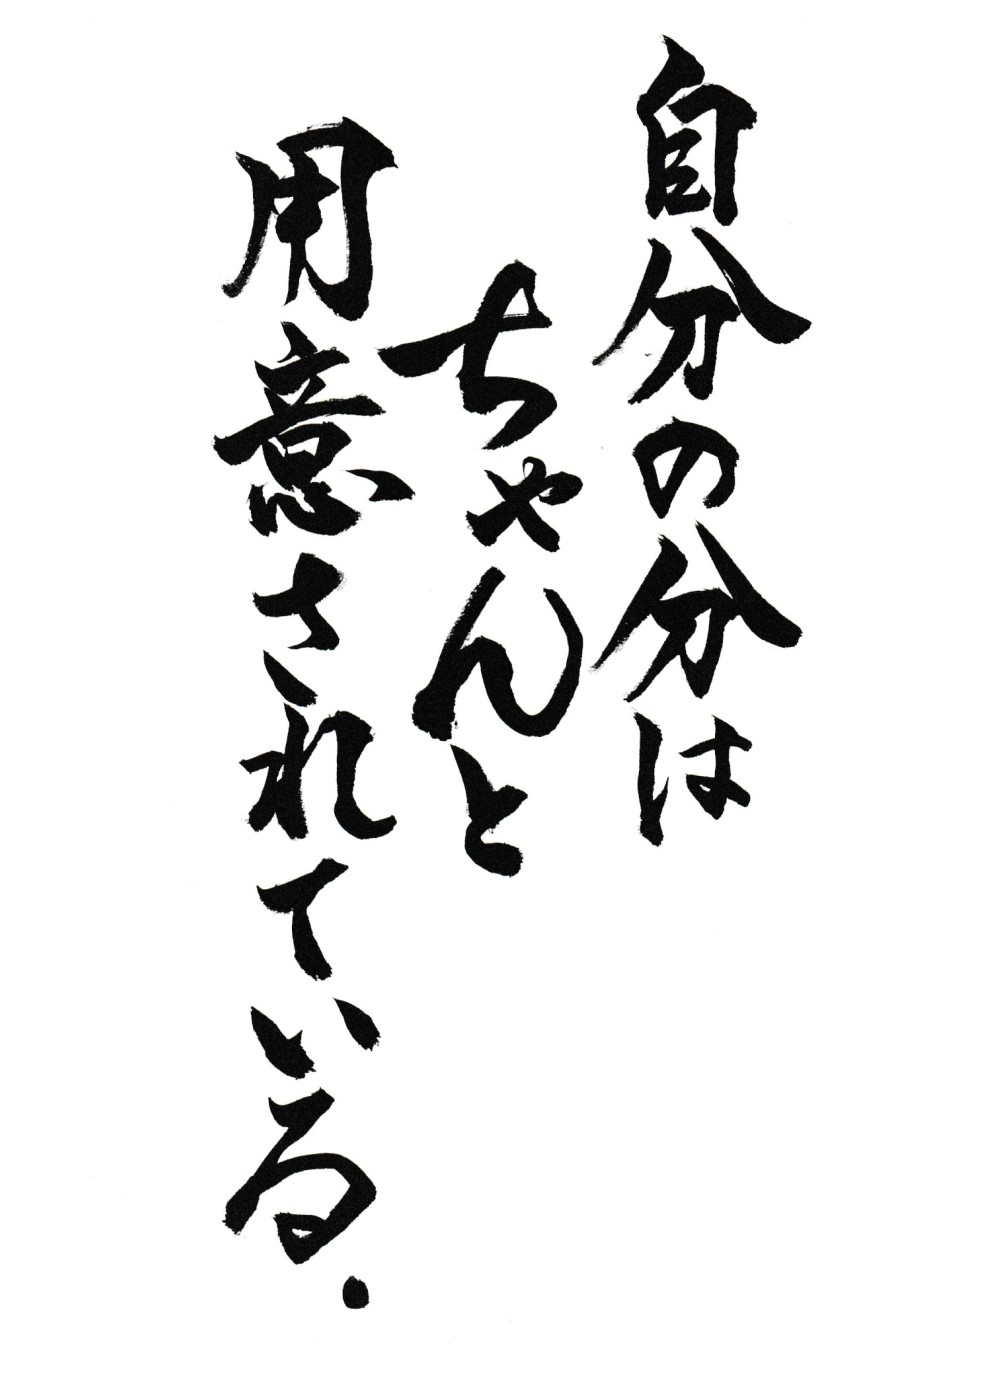 自分の分は
ちゃんと
用意されている.